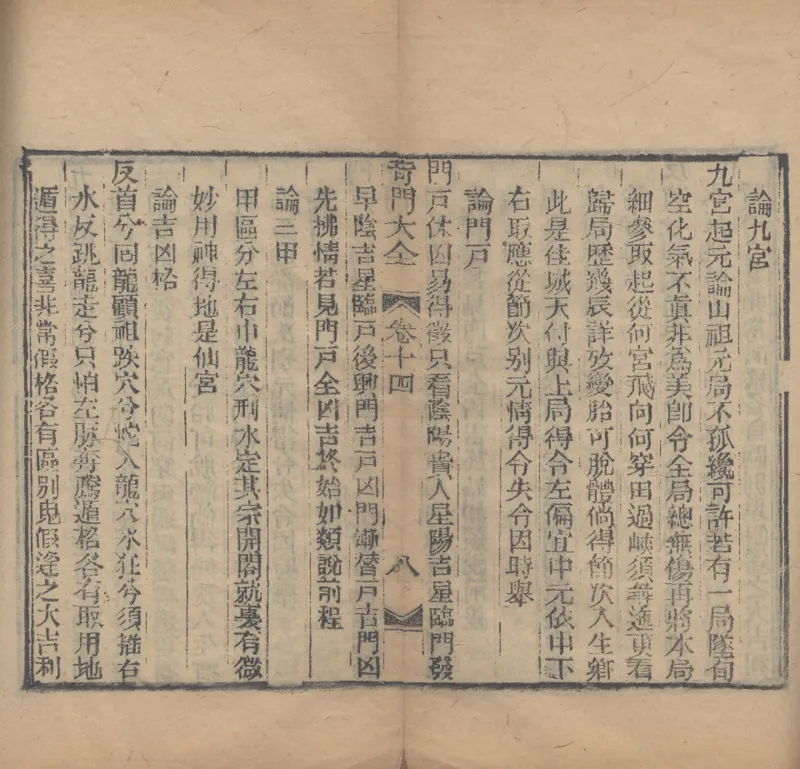 論九宮
九宮起元論山祖元局不孤纔可許若有一局墜旬
空化氣不眞非爲美卽令全局總無傷再將本局
細參取起從何宮飛向何穿田過峽須尋進更看
歸局歷幾辰詳攷變胎可脫體倘得節次入生鄉
此是佳城天付與上局得令左偏宜中元依中下
右取應從節次别元情得令失令因時舉
論門戸
門戸休囚易得微只看陰陽貴人星陽吉星臨門發
奇門大全 卷十四 八
早陰吉星臨戸後興門吉戸凶門漸替戸吉門凶
先拂情若見門戸全凶吉終始如類說前程
論三甲
甲區分左右巾龍穴刑水定其宗開闔就裏有微
妙用神得地是仙宮
論吉凶格
反首兮回龍顧祖跌穴兮蛇入龍穴水狂兮須猪右
水反跳龍走兮只怕左脈奔騰遁格各有取用地
遁得之喜非常假格各有區别鬼假逢之大吉利